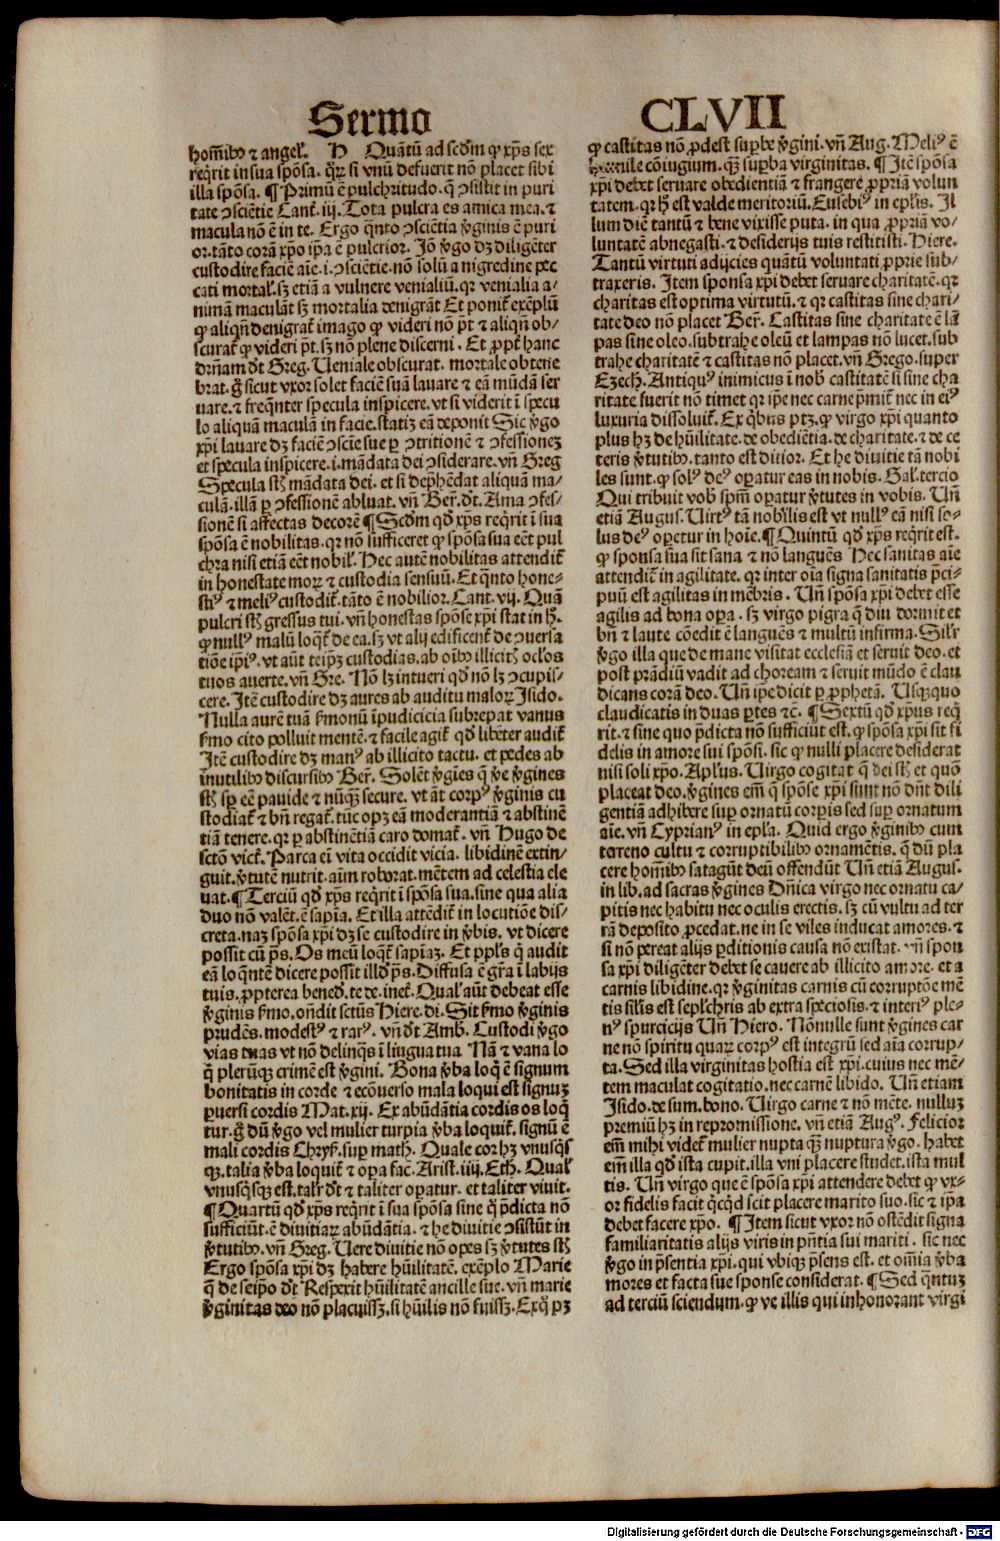 Sermo CLVII
hoīmibꝰ ⁊ angel'. H Quātū ad scd̄m ꝙ xp̄s sex
reqͥrit in sua spōsa. qꝝ si vnū defuerit nō placet sibi
illa spōsa. ¶ Primū ē pulchritudo. q̄ ↄsistit in puri
tate ↄsciētie Cant̄. iij. Tota pulcra es amica mea. ⁊
macula nō ē in te. Ergo qͣnto ↄsciētia v̄ginis ē puri
or. tāto corā xp̄o ip̄a ē pulcrior. Iō v̄go dꝫ diligēter
custodire faciē aīe. i. ↄsciētie. nō solū a nigredine pec
cati mortal'. sꝫ etiā a vulnere venialiū. qꝛ venialia a-
nimā maculāt sꝫ mortalia denigrāt Et ponit̄ exēplū
ꝙ aliqn̄ denigrat̄ imago ꝙ videri nō p̄t ⁊ aliqn̄ ob-
scurat̄ ꝙ videri p̄t. sꝫ nō plene discerni. Et ꝓpt̄ hanc
dr̄nam dt̄ Greg. Ueniale obscurat. mortale obtene
brat. g̊ sicut vxor solet faciē suā lauare ⁊ eā mūdā ser
uare. ⁊ freqͣnter specula inspicere. vt si viderit ī specu
lo aliquā maculā in facie. statiꝫ eā deponit Sic v̄go
xp̄i lauare dꝫ faciē ↄsciēn̄ sue ꝑ ↄtritionē ⁊ ↄfessioneꝫ
et specula inspicere. i. mādata dei ↄsiderare. vn̄ Greg
Specula st̄ mādata dei. et si dep̄hēdat aliquā ma-
culā. illā ꝑ ↄfessionē abluat. vn̄ Ber̄. dt̄. Ama ↄfes-
sionē si affectas decorē ¶ Scd̄m qd̄ xp̄s reqͥrit ī sua
spōsa ē nobilitas. qꝛ nō sufficeret ꝙ spōsa sua eēt pul
chra nisi etiā eēt nobil'. Hec autē nobilitas attendit̄
in honestate moꝝ ⁊ custodia sensiū. Et qͣnto hone-
stiꝰ ⁊ meliꝰ custodit̄. tāto ē nobilior. Cant. vij. Quā
pulcri st̄ gressus tui. vn̄ honestas spōse xp̄i stat in h̄.
ꝙ nullꝰ malū loqͣt̄ de ea. sꝫ vt alij edificent̄ de ↄuersa
tiōe ip̄iꝰ. vt aūt teip̄ꝫ custodias. ab oībꝰ illicitꝭ oclos
tuos auerte. vn̄ Gre. Nō lꝫ intueri qd̄ nō lꝫ ↄcupis-
cere. Itē custodire dꝫ aures ab auditu maloꝝ Isido.
Nulla aurē tuā f̄monū īpudicicia subrepat vanus
f̄mo cito polluit mentē. ⁊ facile agit̄ qd̄ libēter audit̄
Itē custodire dꝫ manꝰ ab illicito tactu. et pedes ab
īnutilibꝰ discursibꝰ Ber̄. Solēt v̄gīes q̄ ve v̄gines
st̄ sp̄ eē pauide ⁊ nūqͣꝫ secure. vt āt corpꝰ v̄ginis cu
stodiat̄ ⁊ bn̄ regat̄. tūc opꝫ eā moderantiā ⁊ abstinē
tiā tenere. qꝛ ꝑ abstinētiā caro domat̄. vn̄ Hugo de
sctō vict̄. Parca eī vita occidit vicia. libidinē extin-
guit. v̄tutē nutrit. aīm roborat. mētem ad celestia ele
uat. ¶ Terciū qd̄ xp̄s reqͥrit ī spōsa sua. sine qua alia
duo nō valēt. ē sap̄īa. Et illa attēdit̄ in locutiōe dis-
creta. naꝫ spōsa xp̄i dꝫ se custodire in v̄bis. vt dicere
possit cū p̄s. Os meū loqͣt̄ sapīaꝫ. Et ppl̄s q̄ audit
eā loqͣntē dicere possit illd̄ p̄s. Diffusa ē gr̄a ī labijs
tuis. ꝓpterea bened̄. te de. inet̄. Qual' aūt debeat esse
v̄ginis f̄mo. on̄dit sctūs Hiere. di. Sit f̄mo v̄ginis
prudēs. modestꝰ ⁊ rarꝰ. vn̄ dt̄ Amb. Custodi v̄go
vias tuas vt nō delinqͣs ī lingua tua Nā ⁊ vana lo
q̄ pleruqͣꝫ crimē est v̄gini. Bona v̄ba loq̄ ē signum
bonitatis in corde ⁊ ecōuerso mala loqui est signuꝫ
puersi cordis Mat. xij. Ex abūdātia cordis os loq̄
tur. g̊ dū v̄go vel mulier turpia v̄ba loquit̄. signū ē
mali cordis Chrys̄. sup math̄. Quale cor hꝫ vnusqͥs
qꝫ. talia v̄ba loquit̄ ⁊ oꝑa fac̄. Arist. iiij. Eth. Qual'
vnusqͥsqꝫ est. talr̄ dt̄ ⁊ taliter oꝑatur. et taliter viuit.
¶ Quartū qd̄ xp̄s reqͥrit ī sua spōsa sine q̄ p̄dicta nō
sufficiūt. ē diuitiaꝝ abūdātia. ⁊ he diuitie ↄsistūt in
v̄tutibꝰ. vn̄ Greg. Uere diuitie nō opes sꝫ v̄tutes st̄
Ergo spōsa xp̄i dꝫ habere hūilitatē. exēplo Marie
q̄ de seip̄o dt̄ Respexit hūilitatē ancille sue. vn̄ marie
v̄ginitas deo nō placuissꝫ. si hūilis nō fuissꝫ. Exq̄ pꝫ
ꝙ castitas nō ꝓdest suꝑbe v̄gini. vn̄ Aug. Meliꝰ ē
cōiugium. qͣꝫ suꝑba virginitas. ¶ Itē spōsa
xp̄i debet seruare obedientiā ⁊ frangere ꝓpriā volun
tatem. qꝛ h̄ est valde meritoriū. Eusebiꝰ in epl̄is. Il
lum diē tantū ⁊ bene vixisse puta. in qua ꝓpriā vo-
luntatē abnegasti. ⁊ desiderijs tuis restitisti. Hiere.
Tantū virtuti adijcies quātū voluntati ꝓprie sub-
traxeris. Item sponsa xp̄i debet seruare charitatē. qꝛ
charitas est optima virtutū. ⁊ qꝛ castitas sine chari-
tate deo nō placet Ber̄. Castitas sine charitate ē lā
pas sine oleo. subtrahe oleū et lampas nō lucet. sub
trahe charitatē ⁊ castitas nō placet. vn̄ Grego. super
Ezech̄. Antiquꝰ inimicus ī nob̄ castitatē si sine cha
ritate fuerit nō timet qꝛ ip̄e nec carne p̄mit̄ nec in eiꝰ
luxuria dissoluit̄. Ex qͥbus ptꝫ. ꝙ virgo xp̄i quanto
plus hꝫ de hūilitate. de obediētia. de charitate. ⁊ de ce
teris v̄tutibꝰ. tanto est ditior. Et he diuitie tā nobi
les sunt. ꝙ solꝰ deꝰ oꝑatur eas in nobis. Gal. tercio
Qui tribuit vob̄ spm̄ oꝑatur v̄tutes in vobis. Un̄
etiā Augus. Uirtꝰ tā nobilis est vt nullꝰ eā nisi so-
lus deꝰ oꝑetur in hoīe. ¶ Quintū qd̄ xp̄s reqͥrit est.
ꝙ sponsa sua sit sana ⁊ nō languēs Hec sanitas aīe
attendit̄ in agilitate. qꝛ inter oīa signa sanitatis p̄ci-
puū est agilitas in mēbris. Un̄ spōsa xp̄i debet esse
agilis ad bona oꝑa. sꝫ virgo pigra q̄ diu dormit et
bn̄ ⁊ laute cōedit ē languēs ⁊ multū infirma. Silr̄
v̄go illa que de mane visitat ecclesiā et seruit deo. et
post prādiū vadit ad choream ⁊ seruit mūdo ē clau
dicans corā deo. Un̄ ip̄e dicit ꝑ ꝓphetā. Usqꝫquo
claudicatis in duas ꝑtes ⁊c̄. ¶ Sextū qd̄ xp̄us reqͥ
rit. ⁊ sine quo p̄dicta nō sufficiūt est. ꝙ spōsa xp̄i sit fi
delis in amore sui spōsi. sic ꝙ nulli placere desiderat
nisi soli xp̄o. Apl̄us. Uirgo cogitat q̄ dei st̄ et quō
placeat deo. v̄gines em̄ q̄ spōse xp̄i sunt nō dn̄t dili
gentiā adhibere suꝑ ornatū corꝑis sed suꝑ ornatum
aīe. vn̄ Cyprianꝰ in epl̄a. Quid ergo v̄ginibꝰ cum
terreno cultu ⁊ corruptibilibꝰ ornamētis. q̄ dū pla
cere hoīmibꝰ satagūt deū offendūt Un̄ etiā Augus.
in lib. ad sacras v̄gines Dn̄ica virgo nec ornatu ca-
pitis nec habitu nec oculis erectis. sꝫ cū vultu ad ter
rā deposito ꝓcedat. ne in se viles inducat amores. ⁊
si nō ꝑereat alijs ꝑditionis causa nō existat. vn̄ spon
sa xp̄i diligēter debet se cauere ab illicito amore. et a
carnis libidine. qꝛ v̄ginitas carnis cū corruptōe mē
tis sil̄is est sepl̄chris ab extra speciosis. ⁊ interiꝰ ple-
nꝰ spurcicijs Un̄ Hiero. Nōnulle sunt v̄gines car
ne nō spiritu quaꝝ corpꝰ est integrū sed aīa corrup-
ta. Sed illa virginitas hostia est xp̄i. cuius nec mē-
tem maculat cogitatio. nec carnē libido. Un̄ etiam
Isido. de sum. bono. Uirgo carne ⁊ nō mēte. nulluꝫ
premiū hꝫ in repromissione. vn̄ etiā Augꝰ. Felicior
em̄ mihi videt̄ mulier nupta qͣꝫ nuptura v̄go. habet
em̄ illa qd̄ ista cupit. illa vni placere studet. ista mul
tis. Un̄ virgo que ē spōsa xp̄i attendere debet ꝙ vx-
or fidelis facit qͥcqͥd scit placere marito suo. sic ⁊ ip̄a
debet facere xp̄o. ¶ Item sicut vxor nō ostēdit signa
familiaritatis alijs viris in p̄ntia sui mariti. sic nec
v̄go in p̄sentia xp̄i. qui vbiqꝫ p̄sens est. et om̄ia v̄ba
mores et facta sue sponse considerat. ¶ Sed qͣntuꝫ
ad terciū sciendum. ꝙ ve illis qui inhonorant virgi
Digitalisierung gefördert durch die Deutsche Forschungsgemeinschaft - DFG